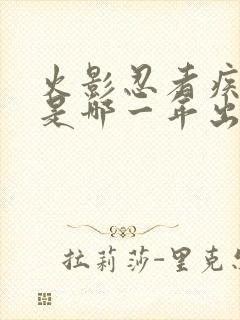 火影忍者疾
是哪一年出
拉莉莎-里克